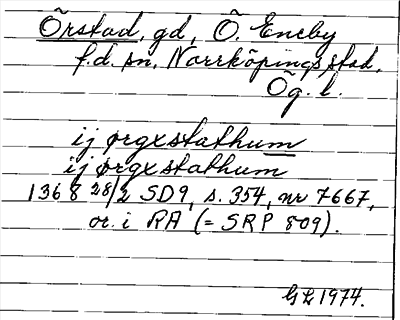 Örstad, gd, Ö. Eneby
f.d. sn, Norrköpings stad,
Ög. l.
ij ørgxstathum
ij ørgxstathum
1368 28/2 SD9, s. 354, nr 7667,
or. i RA (= SRP 809).
GL 1974.